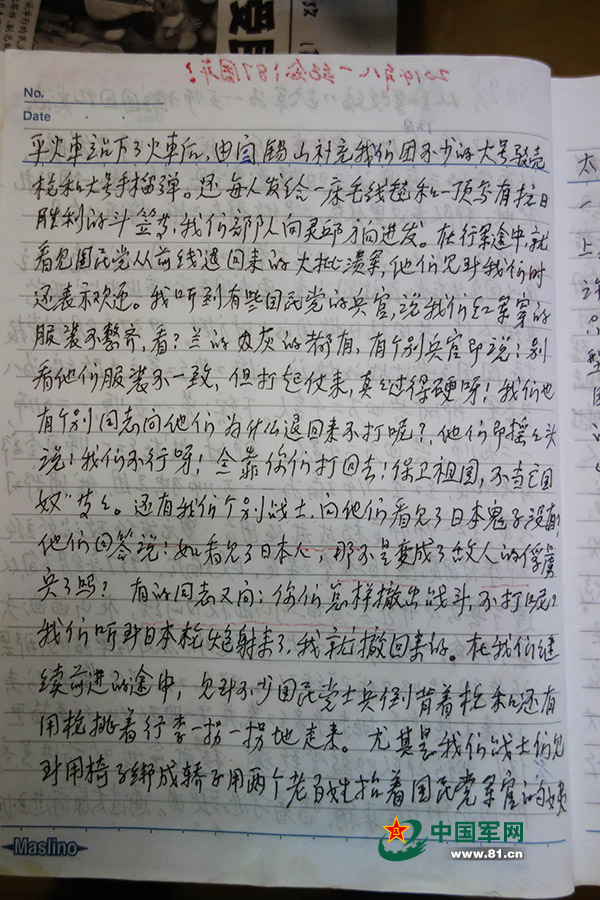 2014年八一纪念187周年!
No.
Date
平火車站下了火車后,由闫锡山补充我们团不少的大号驳壳
枪和大号手榴弹。还每人发给一床毛线毯和一顶写有抗日
胜利的斗笠,我们部队向灵邱方向进发。在行军途中,就
看见国民党从前线退回来的大批溃军,他们见到我们时
还表示欢迎。我听到有些国民党的兵官,说我们红军穿的
服装不整齐,看?兰的灰的都有,有个别兵官即说:别
看他们服装不一致,但打起仗来,真过得硬呀!我们也
有个别同志问他们为什么退回来不打呢?,他们即摇头
说:我们不行呀!全靠你们打回去!保卫祖国,不当亡国
奴"等。还有我们个别战士,问他们看见了日本鬼子没有?
他们回答说:如看见了日本人,那不是变成了敌人的俘虏
兵了吗?有的同志又问:你们怎样撤出战斗,不打呢?
我们听到日本枪炮射来了,我就撤回来的。在我们继
续前进的途中,见到不少国民党士兵倒背着枪和还有
用枪挑着行李一拐一拐地走来。尤其是我们战士们见
到用椅子绑成轿子用两个老百姓抬着国民党军官的
Maslino
中国军网
www.81.cn
太
一
上